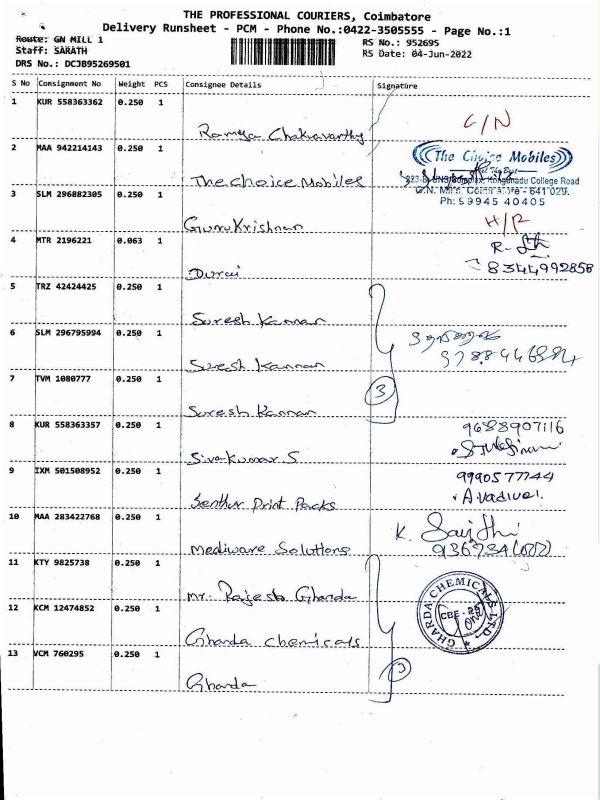 THE PROFESSIONAL COURIERS, Coimbatore
Delivery Runsheet - PCM - Phone No.:0422-3505555 - Page No.:1
Route: GN MILL 1
RS No.: 952695
Staff: SARATH
RS Date: 04-Jun-2022
DRS No.: DCJB95269501
S No Consignment No Weight PCS Consignee Details Signature
1 KUR 558363362 0.250 1
Ramya Chakravarthy C/N
2 MAA 942214143 0.250 1
The Choice Mobiles
The Choice Mobiles
College Road
G.N. Mills, Coimbatore - 641 029.
Ph: 99945 40405
3 SLM 296882305 0.250 1
Guru Krishnan H/R
4 MTR 2196221 0.063 1
Durai
8344992858
5 TRZ 42424425 0.250 1
Suresh Kannan
6 SLM 296795994 0.250 1
Suresh Kannan
7 TVM 1080777 0.250 1
Suresh Kannan
3
8 KUR 558363357 0.250 1
Sivakumar S
9688907116
9 IXM 501508952 0.250 1
Senthur Print Packs
9990577744
A.vadivel.
10 MAA 283422768 0.250 1
Mediware Solutions
K.
11 KTY 9825738 0.250 1
Mr. Rajesh Gharda
12 KCM 12474852 0.250 1
Gharda Chemicals
GHARDA CHEMICALS LTD.
13 VCM 760295 0.250 1
Gharda